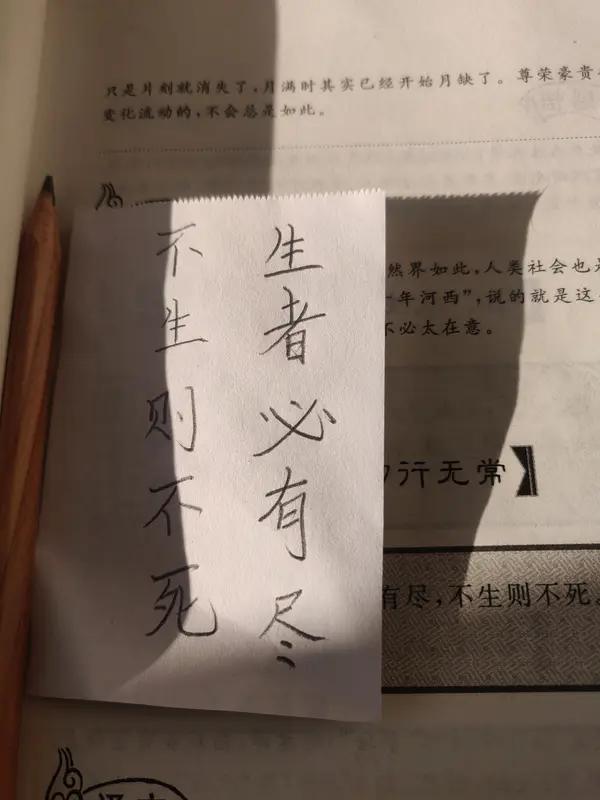 只是片刻就消失了，月满时其实已经开始月缺了。尊荣豪贵
变化流动的，不会总是如此。
然界如此，人类社会也是
年河西”，说的就是这
不必太在意。
行无常
有尽，不生则不死。
生者必有尽
不生则不死